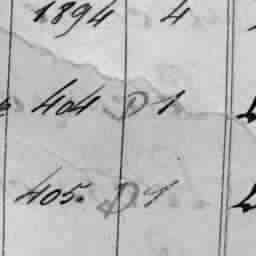 1894 4
404 D 1
405. D 1